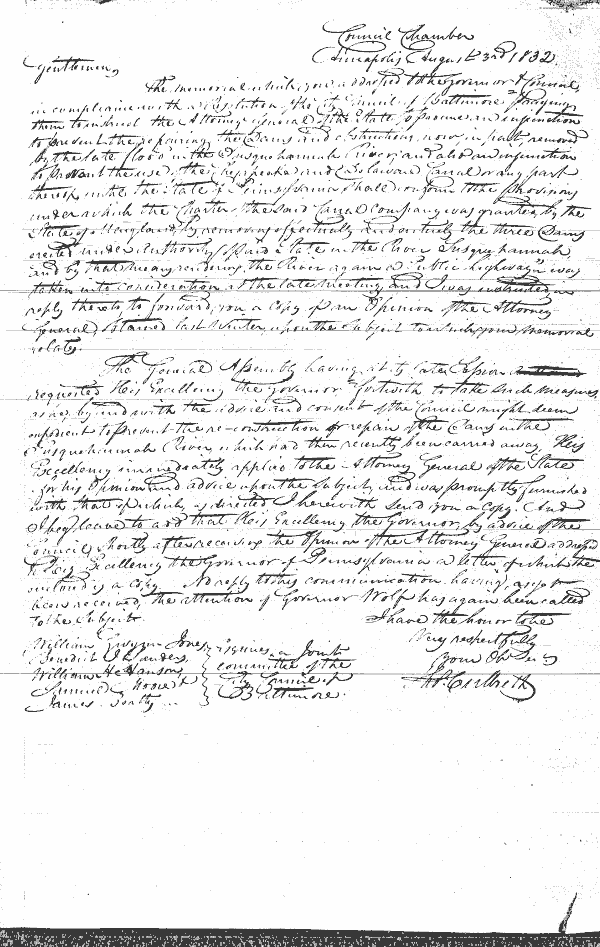 Council Chamber
Annapolis August 23rd 1832
Gentlemen,
The memorial which you addressed to the Governor & Council,
in compliance with a Resolution of the City Council of Baltimore praying
them to instruct the Attorney General of the State to procure an injunction
to prevent the repairing the Dams and obstructions, now in part, removed
by the late flood in the Susquehannah River; and also an injunction
to prevent the use of the Chesapeake and Delaware Canal or any part
thereof, until the State of Pennsylvania shall conform to the provisions
under which the Charter of the said Canal company was granted, by the
State of Maryland, by removing effectually and entirely the three Dams
erected under authority of said State in the River Susquehannah,
and by that means rendering the River again a "Public highway" was
taken into consideration at the late meeting and I was instructed in
reply thereto, to forward, you a Copy of an Opinion of the Attorney
General, obtained last Winter upon the Subject to which your memorial
relates.
The General Assembly having at its late Session
requested His Excellency the Governor "forthwith to take such measures,
as he, by and with the advice and consent of the Council might deem
expedient to prevent the re-construction or repair of the Dams in the
Susquehannah River, which had then recently been carried away. His
Excellency immediately applied to the Attorney General of the State
for his Opinion and advice upon the Subject, and was promptly furnished
with that of which, as directed I herewith send you a Copy. And
I beg leave to add that His Excellency the Governor, by advice of the
Council, shortly after receiving the Opinion of the Attorney General addressed
to His Excellency the Governor of Pennsylvania a letter, of which the
enclosed is a Copy. No reply to this communication having as yet
been received, the attention of Governor Wolf has again been called
to the Subject.
I have the honor to be
Very respectfully
Your Obt Servt
Th. Culbreth
William Gwynn Jones
Benedict I Sanders
William H Hanson
Samuel
James
Esquires, a Joint
committee of the
City Council of
Baltimore.